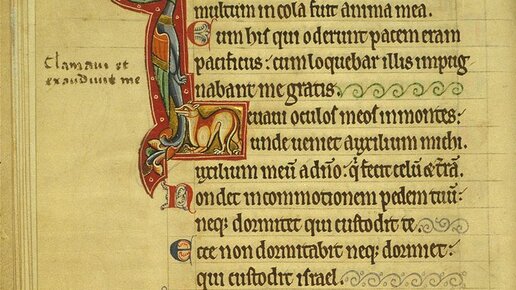 multum incola fuit anima mea.
Cum his qui oderunt pacem eram
pacificus: cum loquebar illis impug
nabant me gratis.
Clamaui et
exaudiuit me
Leuaui oculos meos in montes:
unde ueniet auxilium michi.
Auxilium meū a dño: q̇ fecit celū & t̄rā.
Non det in commotionem pedem tuū:
neq; dormitet qui custodit te.
Ecce non dormitabit neq; dormiet:
qui custodit israel.